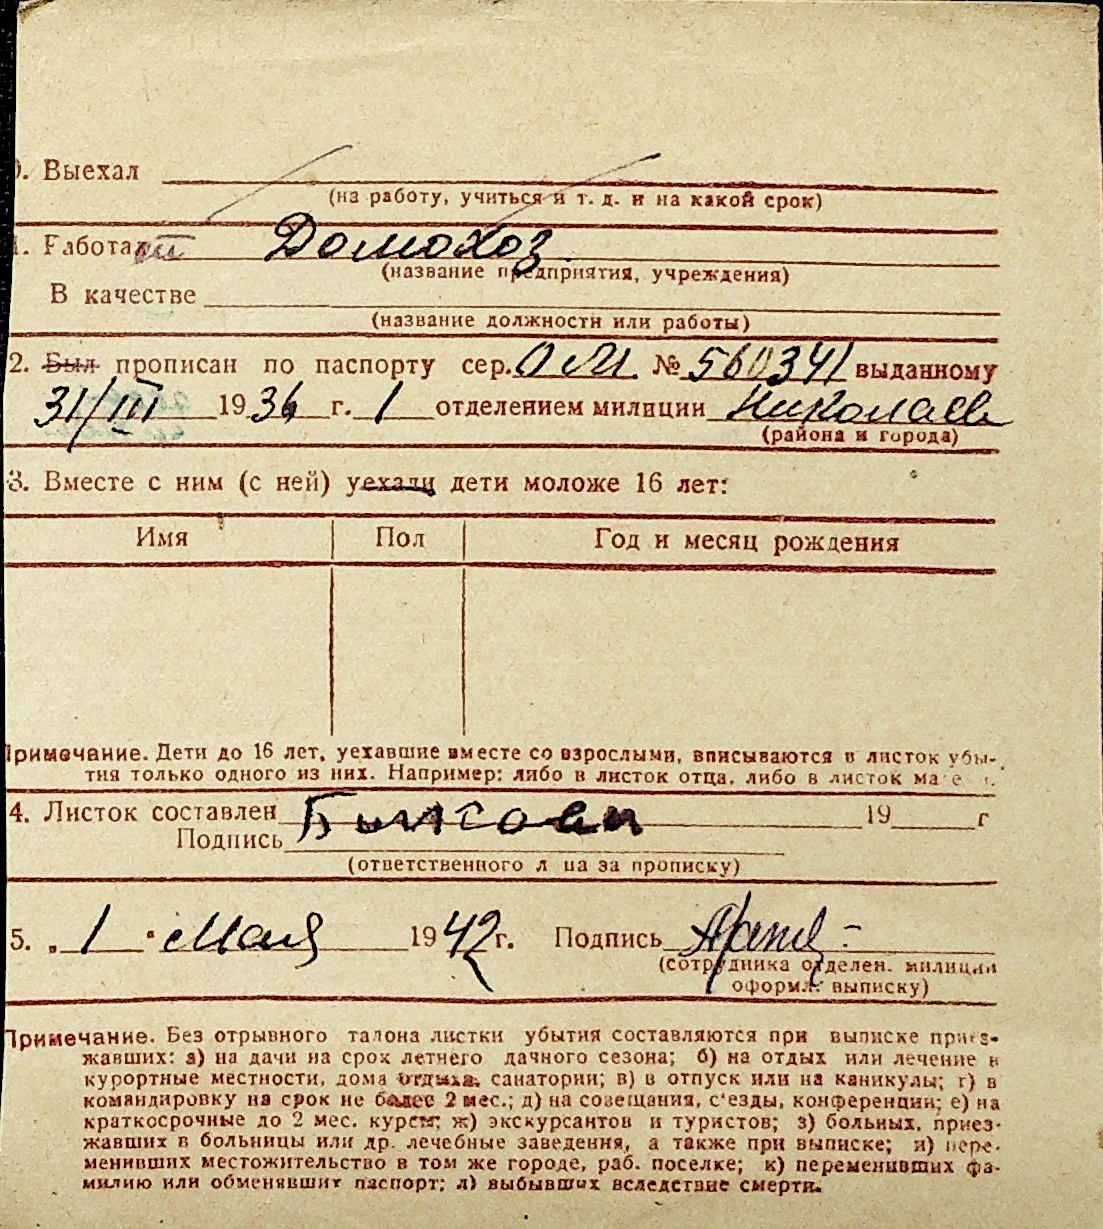 0. Выехал
(на работу, учиться и т. д. и на какой срок)
1. Работает Домохоз.
(название предприятия, учреждения)
В качестве
(название должности или работы)
2. Был прописан по паспорту сер. № 560341 выданному
31/III 1936 г. 1 отделением милиции Николаев
(района и города)
3. Вместе с ним (с ней) уехали дети моложе 16 лет:
Имя Пол Год и месяц рождения
Примечание. Дети до 16 лет, уехавшие вместе со взрослыми, вписываются в листок убы-
тия только одного из них. Например: либо в листок отца, либо в листок
4. Листок составлен 19 г
Подпись
(ответственного л ца за прописку)
5. „ 1 " Мая 1942 г. Подпись
(сотрудника отделен. милиции
оформл. выписку)
Примечание. Без отрывного талона листки убытия составляются при выписке приез-
жавших: а) на дачи на срок летнего дачного сезона; б) на отдых или лечение в
курортные местности, дома отдыха, санатории; в) в отпуск или на каникулы; г) в
командировку на срок не более 2 мес.; д) на совещания, с'езды, конференции; е) на
краткосрочные до 2 мес. курсы; ж) экскурсантов и туристов; з) больных, приез-
жавших в больницы или др. лечебные заведения, а также при выписке; и) пере-
менивших местожительство в том же городе, раб. поселке; к) переменивших фа-
милию или обменявших паспорт; л) выбывших вследствие смерти.